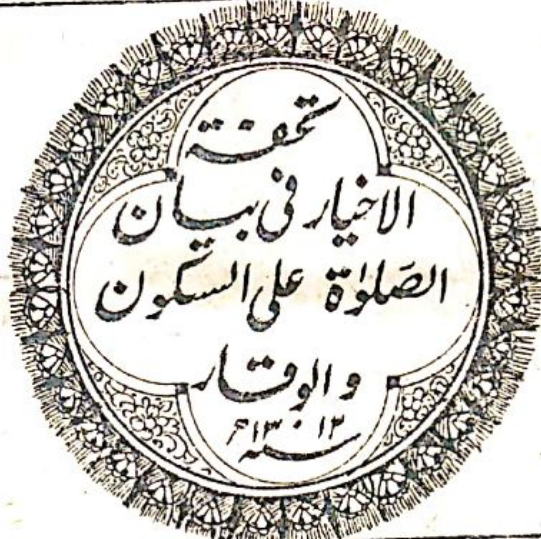 تحفة
الاخيار فى بيان
الصَلوٰة على السكون
و الوقار
سنه